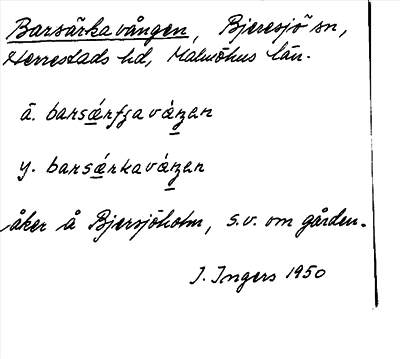 Barsärkavången, Bjeresjö sn,
Herrestads hd, Malmöhus län.
ä. barsǽrkaváŋen
y. barsǽrkaváŋen
åker å Bjersjöholm, s.v. om gården.
I. Ingers 1950